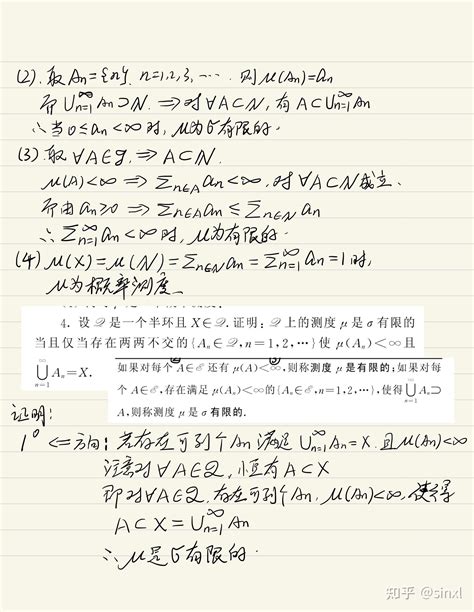 (2). 取 An={n}. n=1,2,3, ⋯. 则 μ(An)=an
而 ∪ₙ₌₁^∞ An⊃N. ⇒对∀A⊂N, 有 A⊂∪ₙ₌₁^∞ An
∴当 0≤an<∞时, μ为σ有限的.
(3). 取∀A∈𝒯, ⇒ A⊂N.
μ(A)<∞ ⇒ Σn∈A an<∞, 对∀A⊂N成立.
而由 an≥0 ⇒ Σn∈A an ≤ Σn∈N an
∴ Σₙ₌₁^∞ an<∞时, μ为有限的.
(4) μ(X)=μ(N)=Σn∈N an=Σₙ₌₁^∞ an=1时,
μ为概率测度
4. 设 𝒬 是一个半环且 X∈𝒬. 证明: 𝒬 上的测度 μ 是 σ 有限的
当且仅当存在两两不交的{Aₙ∈𝒬,n=1,2,⋯}使 μ(Aₙ)<∞且
∪ₙ₌₁^∞ Aₙ=X.
如果对每个 A∈ℰ 还有 μ(A)<∞,则称测度 μ 是有限的;如果对每
个 A∈ℰ,存在满足 μ(Aₙ)<∞的{Aₙ∈ℰ,n=1,2,⋯},使得∪ₙ₌₁^∞ Aₙ⊃
A,则称测度 μ 是 σ 有限的.
证明:
1° <=方向: 若存在可列个An 满足 ∪ₙ₌₁^∞ An=X. 且μ(An)<∞
注意对∀A∈𝒬, 恒有 A⊂X
即对∀A∈𝒬. 存在可列个An, μ(An)<∞, 使得
A⊂X=∪ₙ₌₁^∞ An
∴ μ是σ有限的.
知乎 @sinxl